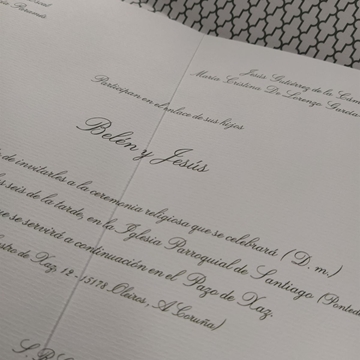 Jesús Gutiérrez de la Cá
María Cristina De Lorenzo García
Participan en el enlace de sus hijos
Belén y Jesús
de invitarles a la ceremonia religiosa que se celebrará (D. m.)
seis de la tarde, en la Iglesia Parroquial de Santiago (Ponted
se servirá a continuación en el Pazo de Xaz
de Xaz, 12 - 15178 Oleiros, A Coruña)